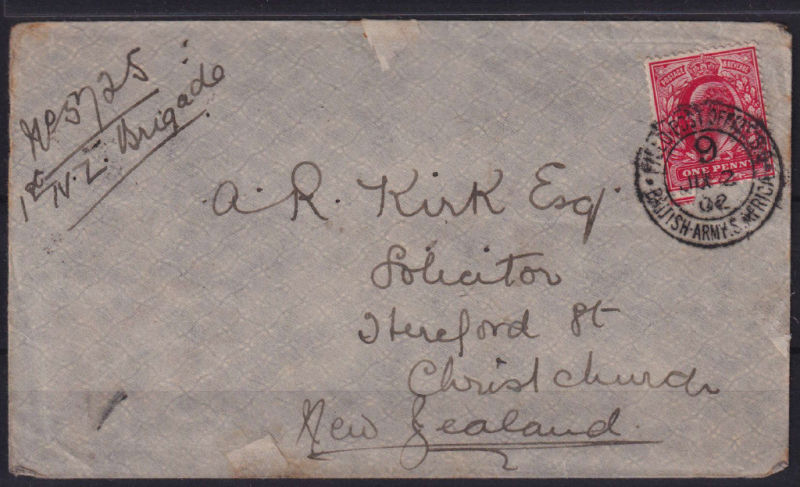 No 5725
1st N.Z. Brigade
A. R. Kirk Esq.
Solicitor
Hereford St
Christchurch
New Zealand.
POSTAGE & REVENUE
ONE PENNY
FIELD POST OFFICE
9
2
02
BRITISH ARMY S. AFRICA